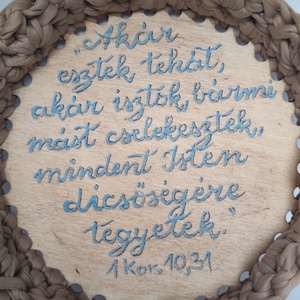 "Akár
esztek, tehát,
akár isztok, bármi
mást cselekesztek,
mindent Isten
dicsőségére
tegyetek."
1 Kor. 10,31